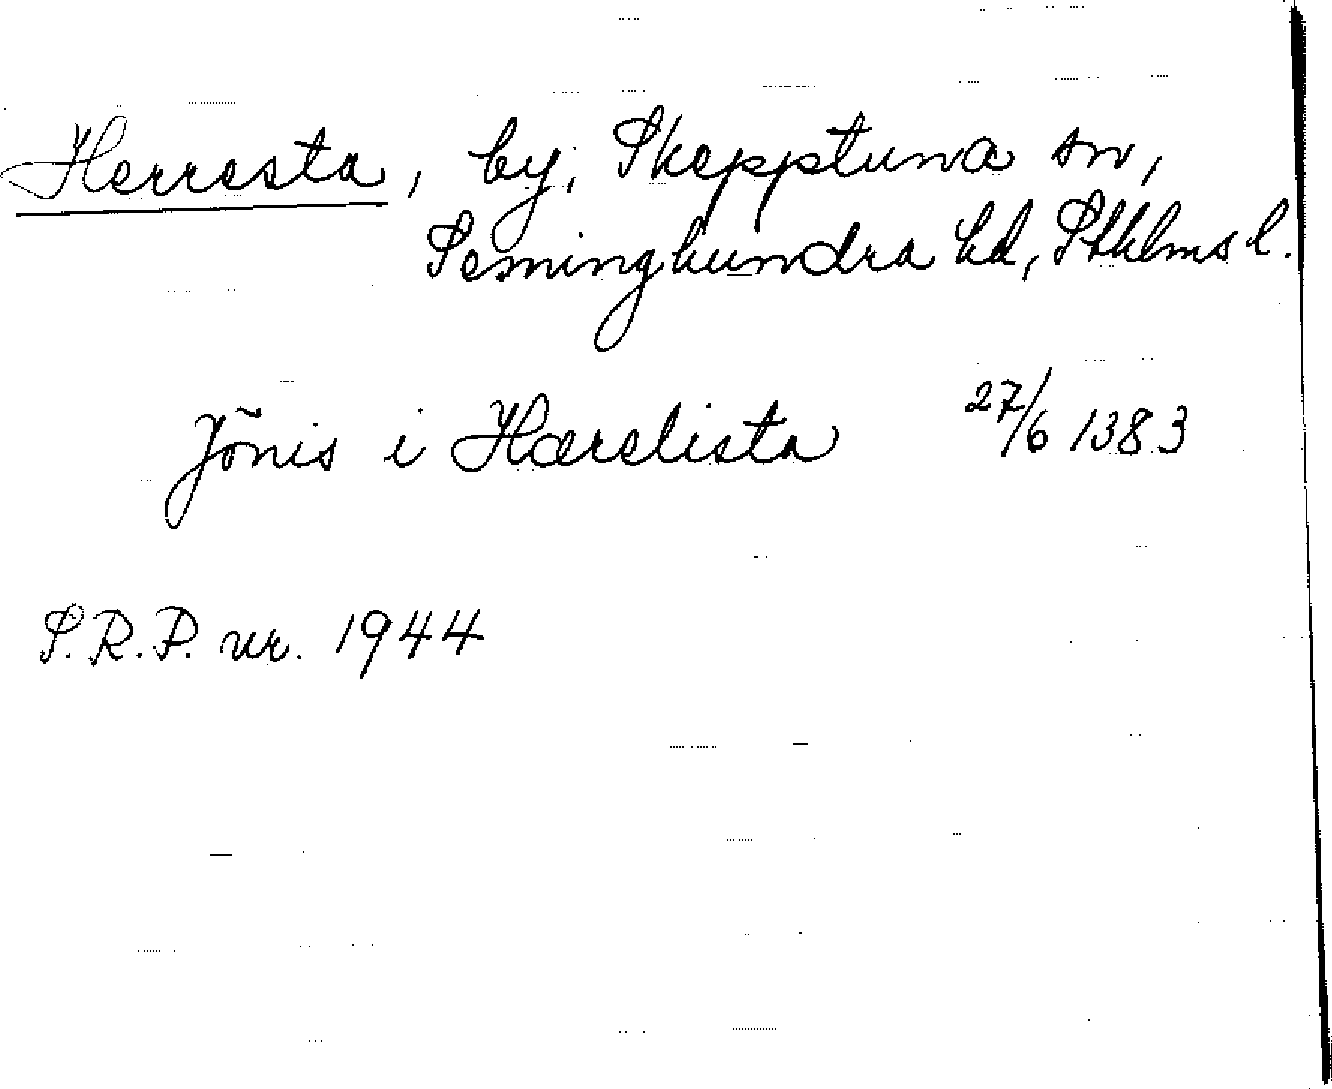 Herresta, by, Skepptuna sn,
Seminghundra hd, Sthlms l.
Jõnis i Hærelista 27/6 1383
S.R.P. nr. 1944